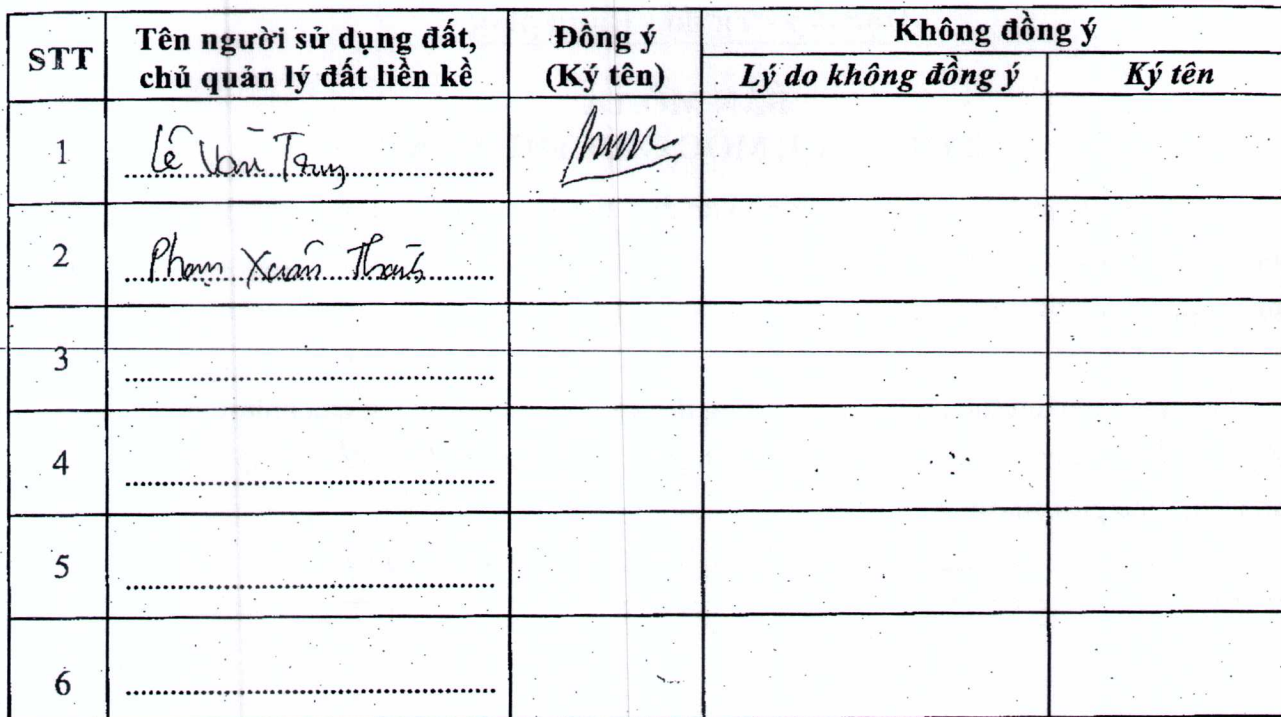 STT
Tên người sử dụng đất,
chủ quản lý đất liền kề
Đồng ý
(Ký tên)
Không đồng ý
Lý do không đồng ý
Ký tên
1
Lê Văn Trung
2
Phạm Xuân
3
4
5
6